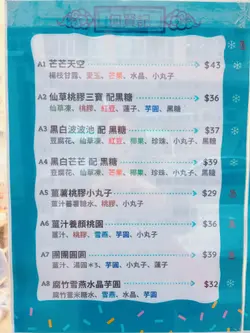 A1 芒芒天空 $43
楊枝甘露、麥玉、芒果、水晶、小丸子
A2 仙草桃膠三寶 配黑糖 $36
仙草凍、桃膠、紅豆、蓮子、芋圓、黑糖
A3 黑白波波池 配 黑糖 $37
豆腐花、仙草凍、紅豆、椰果、珍珠、小丸子、黑豆
A4 黑白芒芒 配 黑糖 $39
豆腐花、仙草凍、芒果、椰果、珍珠、小丸子、黑豆
A5 薑薯桃膠小丸子 $29
薑汁蕃薯糖水、桃膠、小丸子
A6 薑汁養顏桃圓 $36
薑汁、桃膠、雪燕、芋圓、小丸子
A7 團團圓圓 $39
薑汁、湯圓*3、芋圓、小丸子、蓮子
A8 腐竹雪燕水晶芋圓 $32
腐竹薏米糖水、雪燕、水晶、芋圓